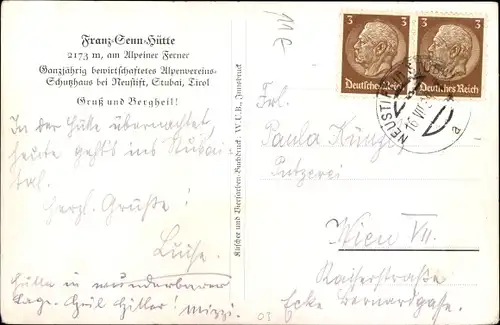 Franz-Senn-Hütte
2173 m, am Alpeiner Ferner
Ganzjährig bewirtschaftetes Alpenvereins-
Schutzhaus bei Neustift, Stubai, Tirol
Gruß und Bergheil!
In der Hütte übernachtet,
heute geht's ins Stubai-
tal.
Herzl. Grüße!
Luise.
Hütte in wunderbarer
Lage. Heil Hitler! Mizzi.
Kupfer- und Vierfarben-Buchdruck · W.U.B., Innsbruck
11 K
3 3
3 3
Deutsches Reich
Deutsches Reich
NEUSTIFT
16 VII
a
Frl.
Paula
Putzerei
Wien VII.
Kaiserstraße
Ecke Bernardgasse.
03